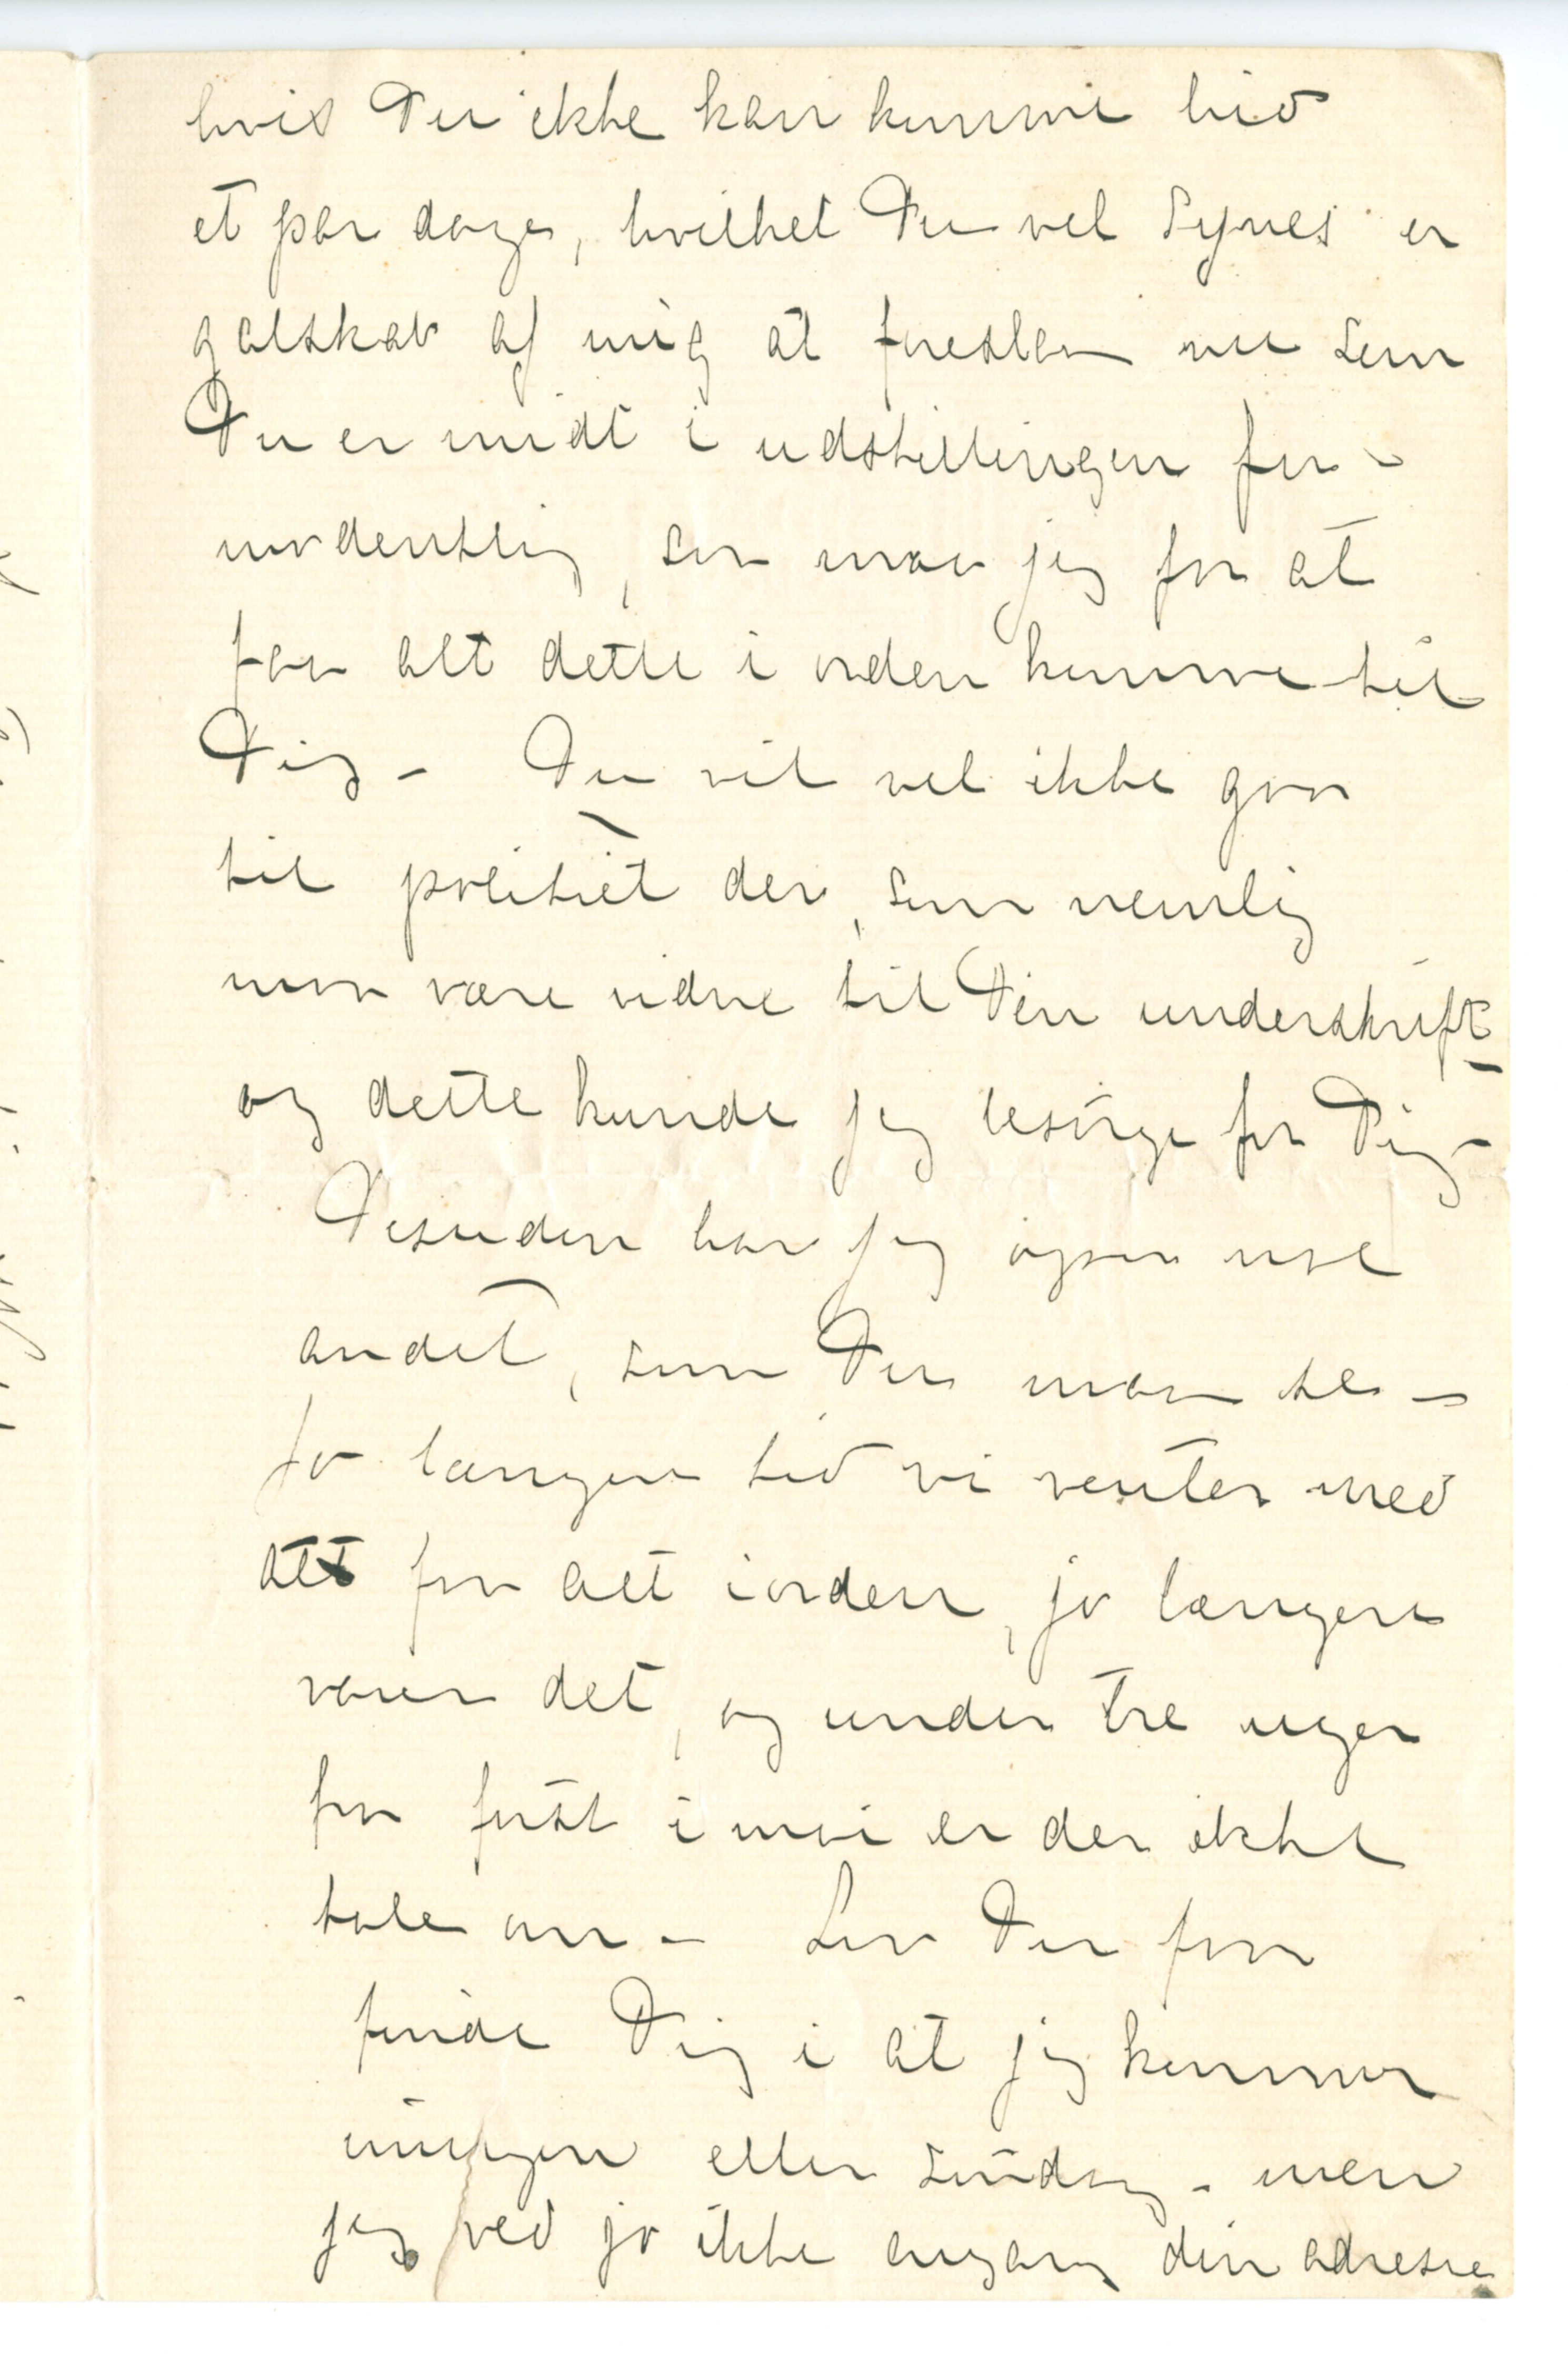 hvis Du ikke kan komme hid
et par dage, hvilket Du vel synes er
galskab af mig at foreslaa nu som
Du er midt i udstillingen for-
modentlig, saa maa jeg for at
faa alt dette i orden komme til
Dig – Du vil vel ikke gaa
til politiet der, som nemlig
maa være vidne til Din underskrift –
og dette kunde jeg besørge for Dig –
Desuden har jeg ogsaa noe
andet, som Du maa se –
Jo længere tid vi venter med
at faa alt iorden, jo længere
varer det, og under tre uger
fra först i mai er der ikke
tale om – Lov Du faar
finde Dig i at jeg kommer
imorgen eller söndag – men
jeg ved jo ikke engang din adresse